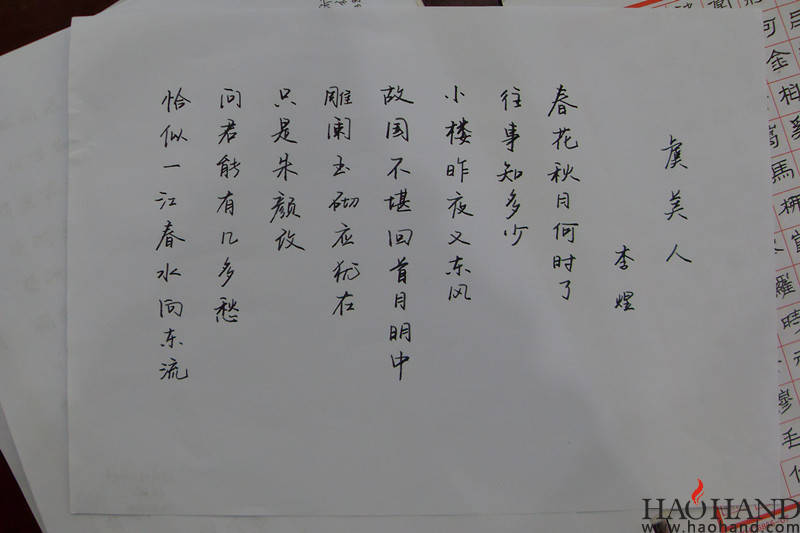 虞美人
李煜
春花秋月何时了
往事知多少
小楼昨夜又东风
故国不堪回首月明中
雕阑玉砌应犹在
只是朱颜改
问君能有几多愁
恰似一江春水向东流
HAOHAND
www.haohand.com